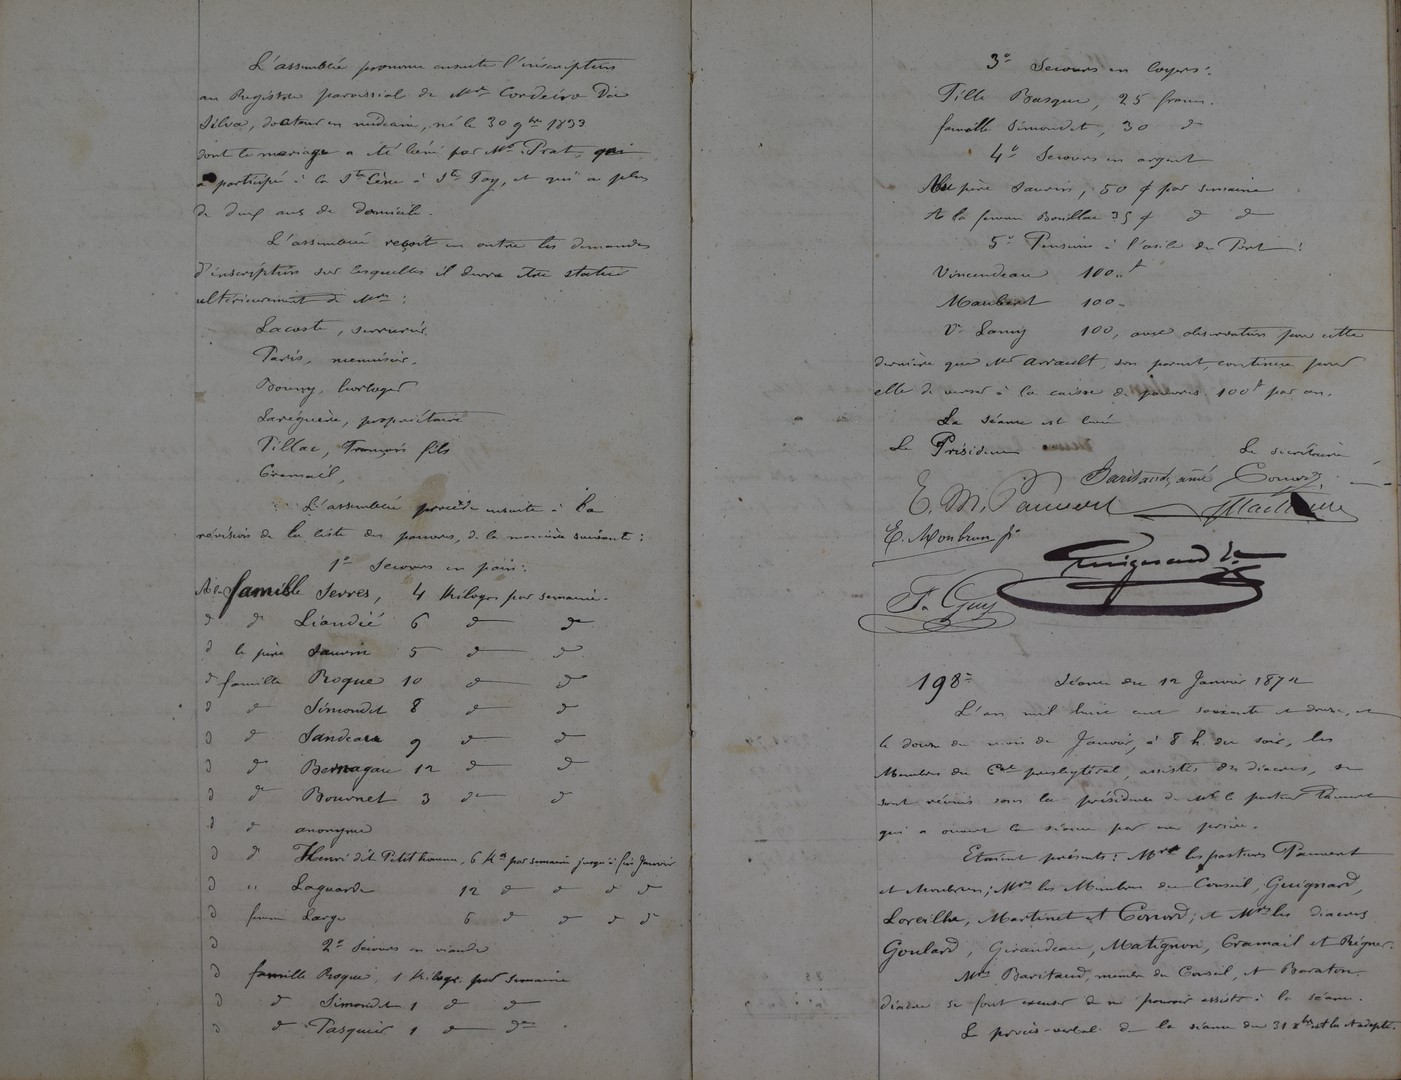 L'assemblée prononce ensuite l'inscription
au Registre paroissial de Mr Cordeiro Da
Silva, docteur en médecine, né le 30 9bre 1833
dont le mariage a été béni par Mr Prat, qui
a participé à la Ste Cène à Ste Foy, et qui a plus
de deux ans de domicile.
L'assemblée reçoit en outre les demandes
d'inscription sur lesquelles il devra être statué
ultérieurement de Mrs :
Lacoste, serrurier
Paris, menuisier.
Bonny, horloger
Laréguère, propriétaire
Pillac, François fils
Cramail,
L'assemblée procède ensuite à la
révision de la liste des pauvres, de la manière suivante :
1° Secours en pain :
A la famille Serres, 4 Kilogs par semaine.
d d Liandié 6 d d
d le père Sauvin 5 d d
d famille Roque 10 d d
d d Simondet 8 d d
d d Sandeau 9 d d
d d Bernagau 12 d d
d d Bournet 3 d d
d d anonyme
d d Henri dit Petit homme, 6 Kos par semaine jusqu'à fin Janvier
d " Laguarde 12 d d d d
d femme Large 6 d d d d
d 2° Secours en viande
d famille Roque, 1 Kilogr. par semaine
d d Simondet 1 d d
d d Pasquier 1 d d
3° Secours en loyers :
Fille Basque, 25 francs.
famille Simondet, 30 d
4° Secours en argent
Au père Sauvin, 50 c par semaine
A la femme Bouillac 35 c d d
5° Pensions à l'asile du Port :
Vincendeau 100 f
Maubert 100
Ve Lamy 100, avec observation pour cette
dernière que Mr Arrault, son parent, continue pour
elle de verser à la caisse des pauvres 100f par an.
La séance est levée
Le Président Le secrétaire
Baritaud, ainé Conord
E. M. Pauvert Martinet
E. Monbrun fs
Guignard
F. Guy
198e Séance du 12 Janvier 1872
L'an mil huit cent soixante et douze, et
le douze du mois de Janvier, à 8 h. du soir, les
Membres du Cel presbytéral, assistés des diacres, se
sont réunis sous la présidence de Mr le pasteur Pauvert
qui a ouvert la séance par une prière.
Etaient présents : Mrs les pasteurs Pauvert
et Monbrun ; Mrs les Membres du Conseil, Guignard,
Loreilhe, Martinet et Conord ; et Mrs les diacres
Goulard, Girandeau, Matignon, Cramail et Régner.
Mrs Baritaud, membre du Conseil, et Baraton
diacre se font excuser de ne pouvoir assister à la séance.
Le procès-verbal de la séance du 31 Xbre est lu et adopté.